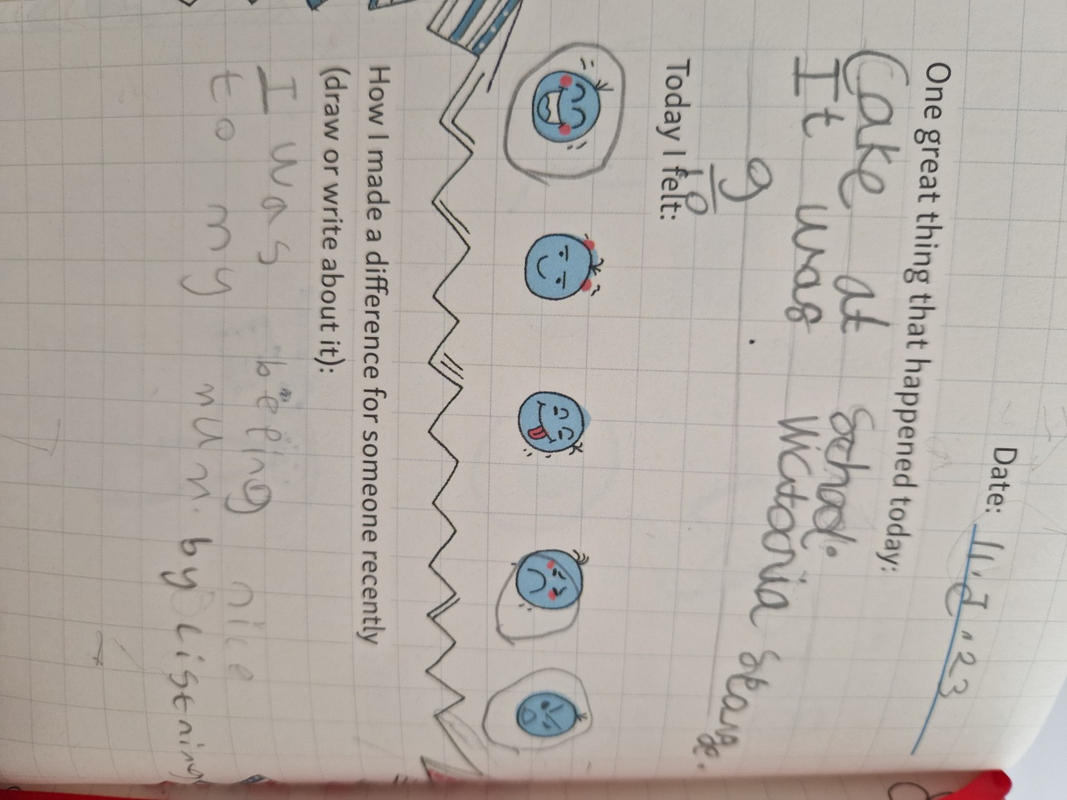 Date: 11.5.23
One great thing that happened today:
Cake at School.
It was Victoria
9/10
Today I felt:
How I made a difference for someone recently
(draw or write about it):
I was being nice
to my mum. by Listning